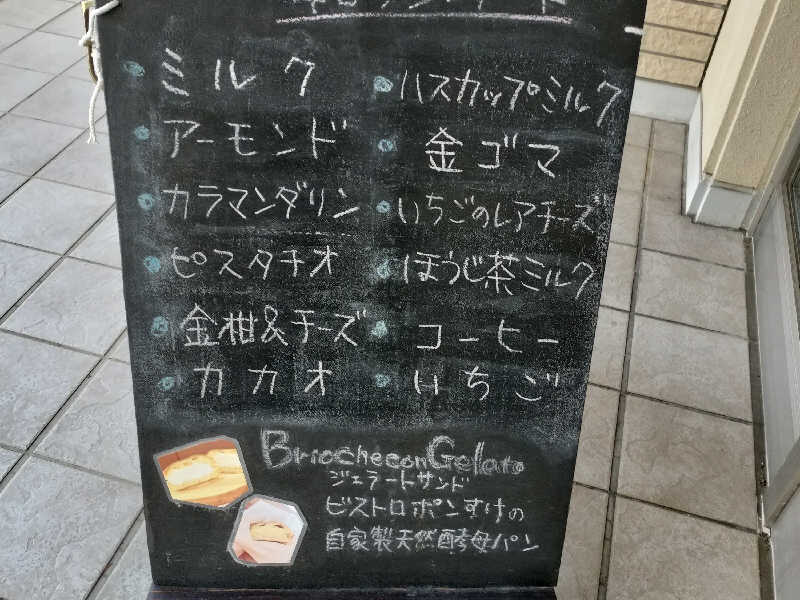 ミルク
アーモンド
カラマンダリン
ピスタチオ
金柑&チーズ
カカオ
ハスカップミルク
金ゴマ
いちごのレアチーズ
ほうじ茶ミルク
コーヒー
いちご
Briochecon Gelato
ジェラートサンド
ビストロポンすけの
自家製天然酵母パン